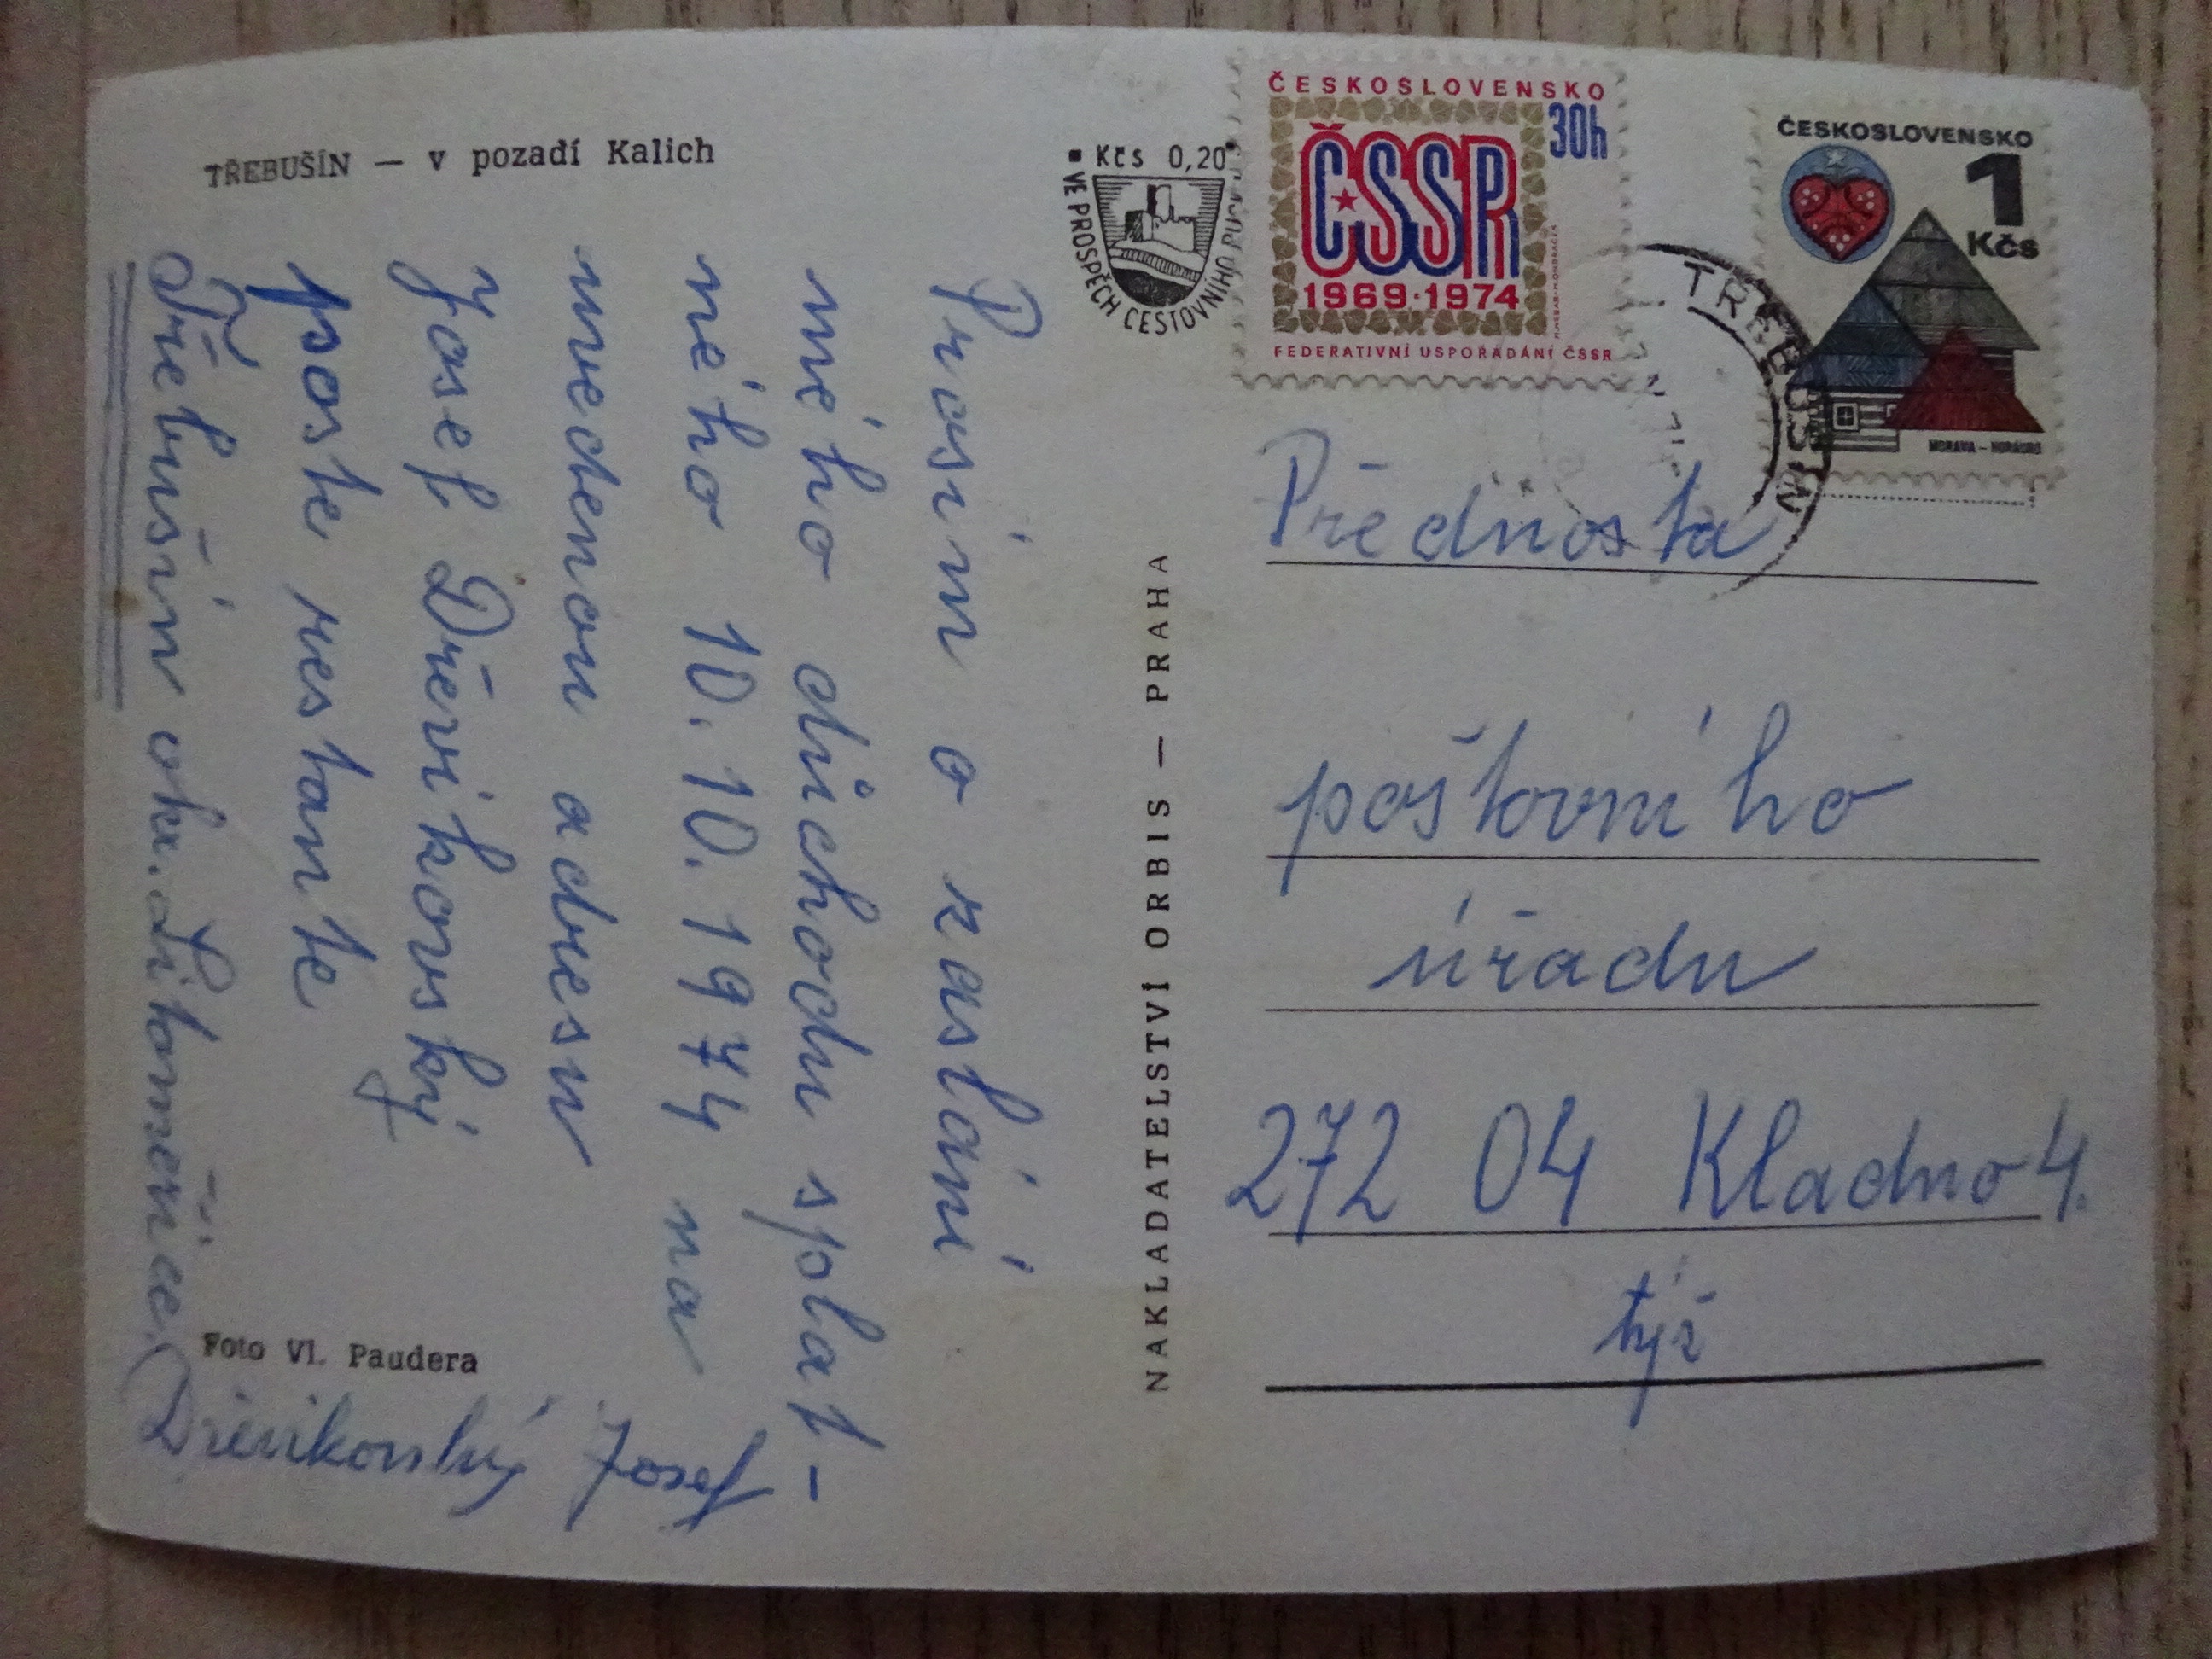 TŘEBUŠÍN — v pozadí Kalich
Prosím o zaslání
mého důchodu splat-
ného 10.10.1974 na
uvedenou adresu
Josef Dřevikovský
poste restante
Třebušín okr. Litoměřice.
Foto Vl. Paudera
Dřevikovský Josef
NAKLADATELSTVÍ ORBIS — PRAHA
Kčs 0,20
VE PROSPĚCH CESTOVNÍHO RUCHU
ČESKOSLOVENSKO
30h
ČSSR
1969·1974
FEDERATIVNÍ USPOŘÁDÁNÍ ČSSR
ČESKOSLOVENSKO
1
Kčs
MORAVA – HORÁCKO
TŘEBUŠÍN
Přednosta
poštovního
úřadu
272 04 Kladno 4.
týž